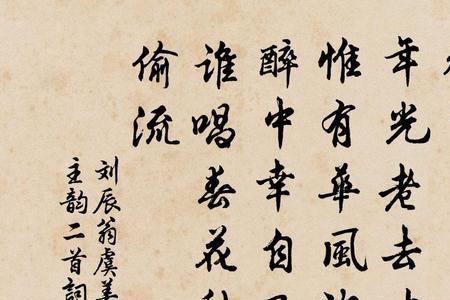 年光老去
惟有華風
醉中幸自
誰唱春花
偷流
刘辰翁虞美
主韵二首詞